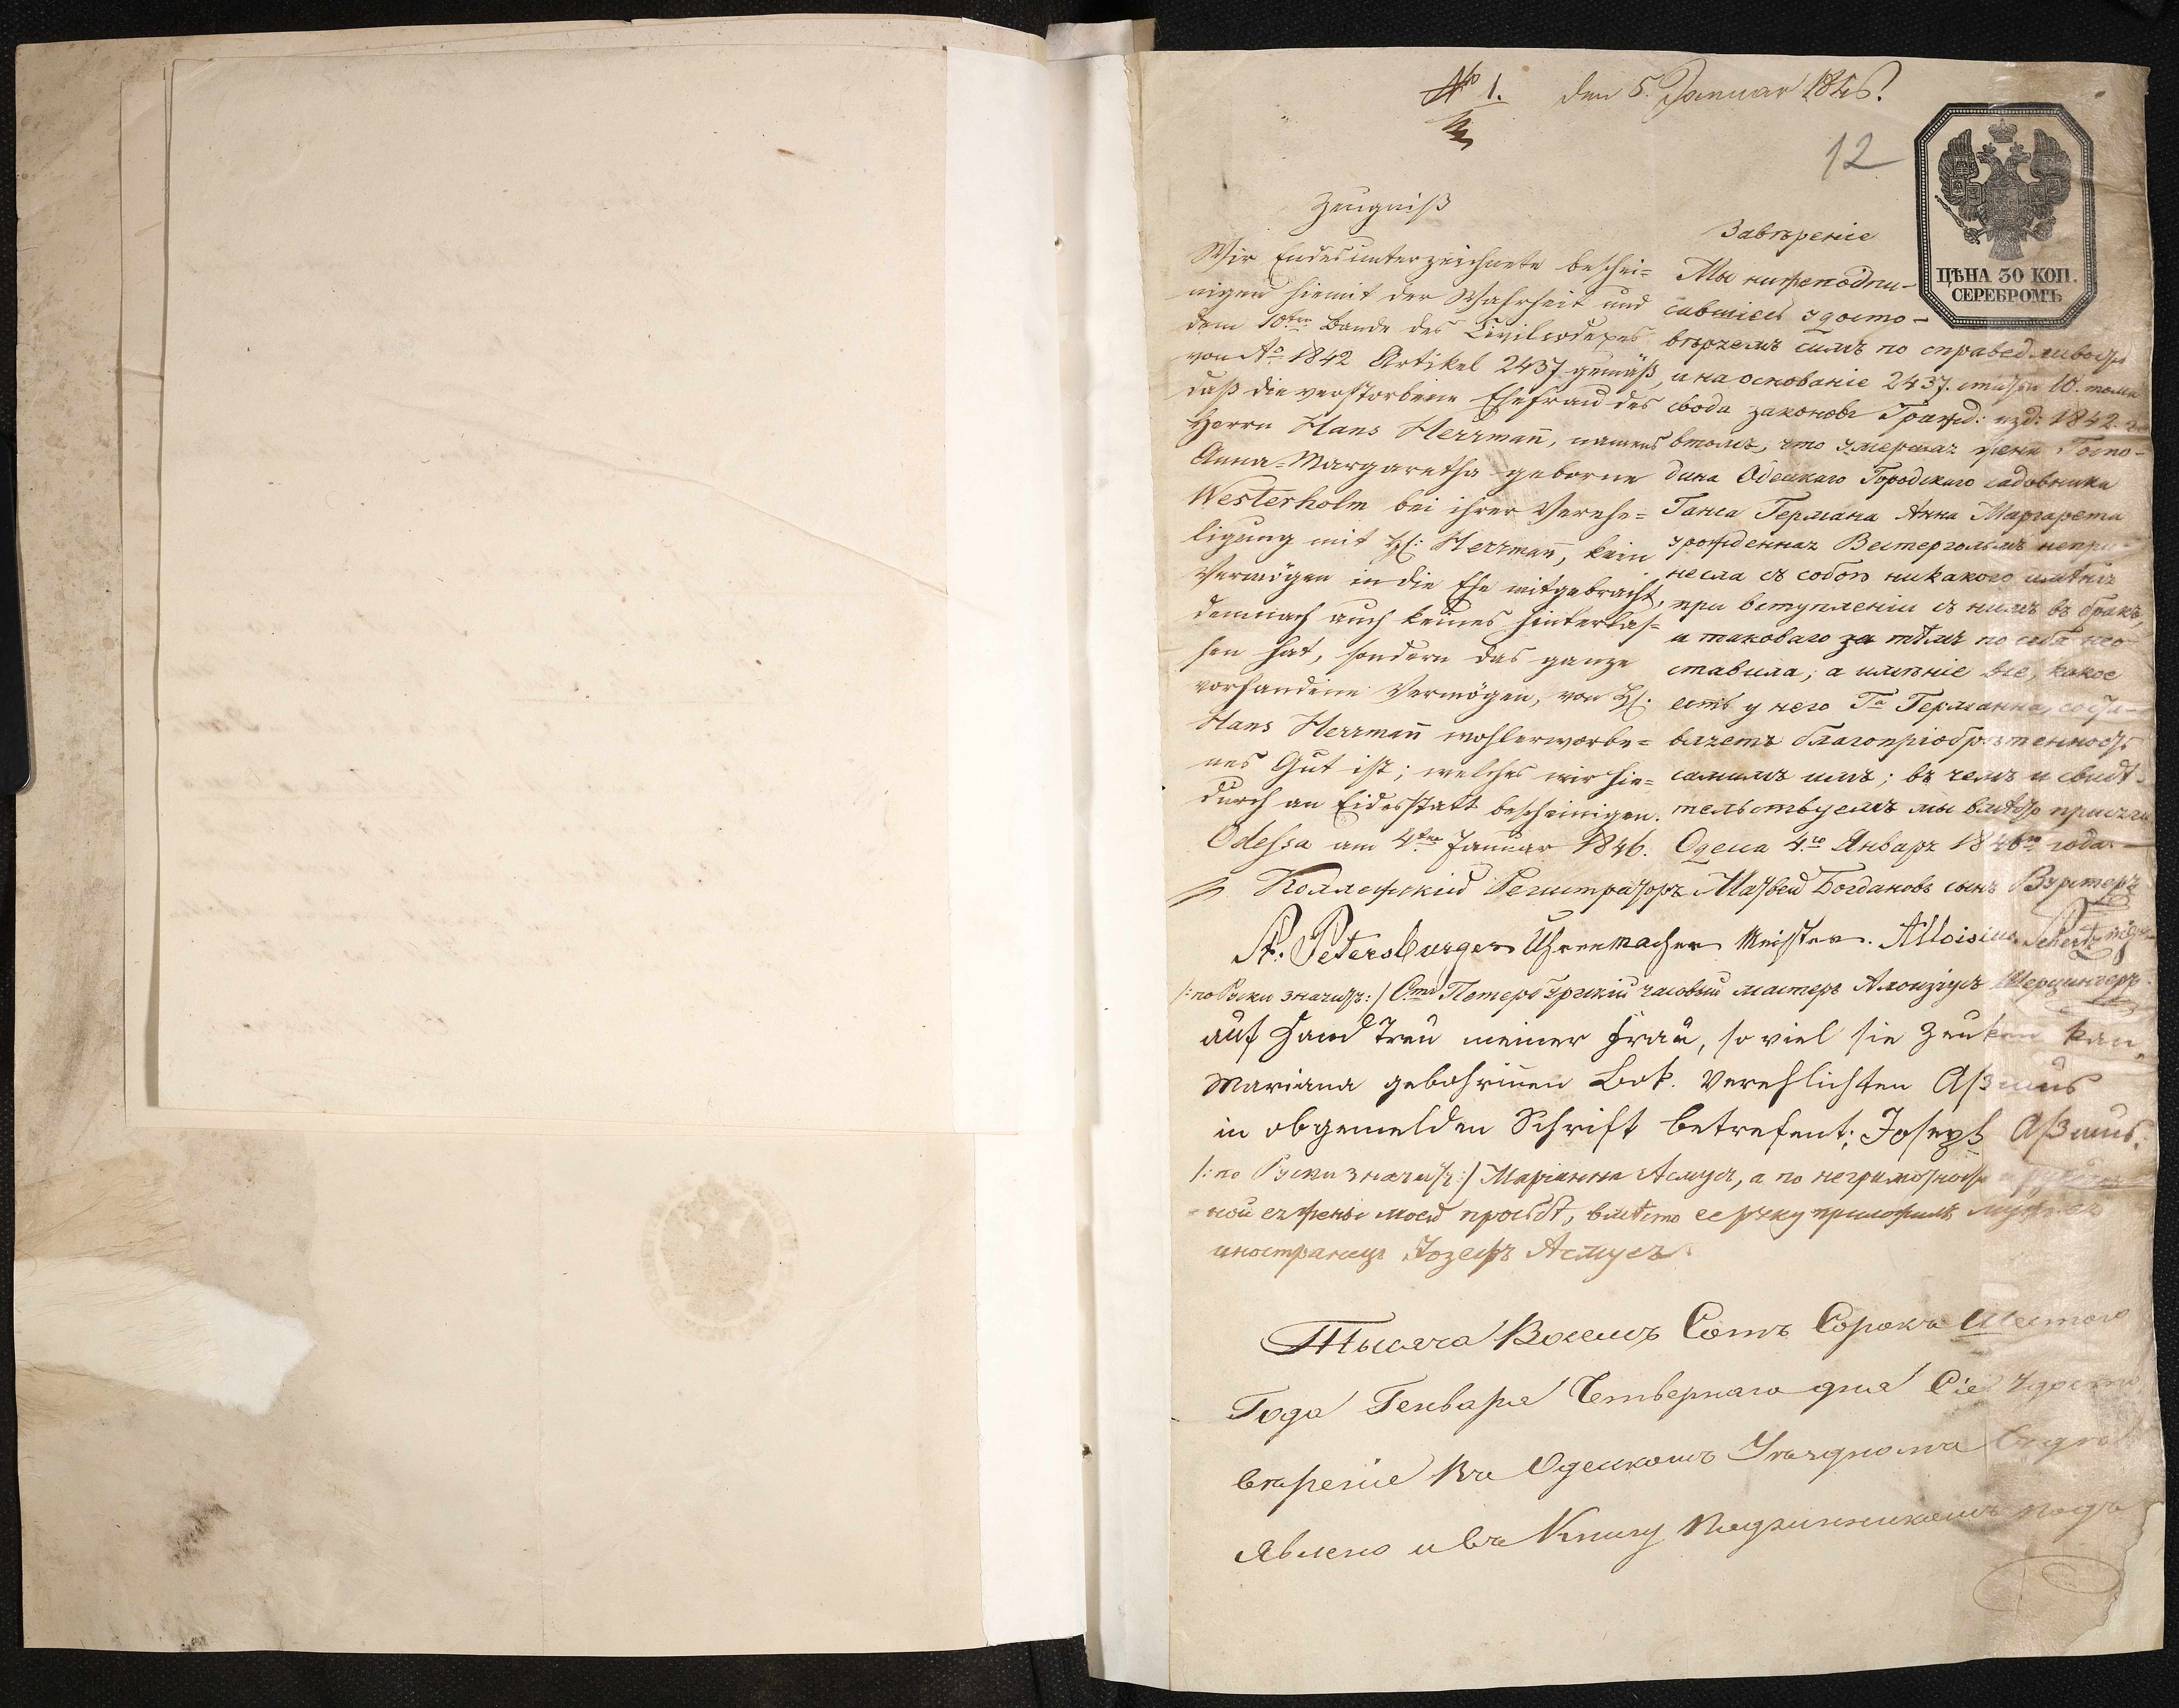 No 1. den 5. Januar 1846.
12
ЦѢНА 30 КОП.
СЕРЕБРОМЪ
Zeugniß
Wir Endesunterzeichnete beschei=
nigen hiemit der Wahrheit und
dem 10ten Bande des Civilcodexes
von Ao 1842 Artikel 2437 gemäß,
daß die verstorbene Ehefrau des
Herrn Hans Herrmañ, namens
Anna-Margaretha geborne
Westerholm bei ihrer Verehe=
ligung mit H: Herrmañ, kein
Vermögen in die Ehe mitgebracht,
demnach auch keines hinterlas=
sen hat, sondern das ganze
vorhandene Vermögen, von H.
Hans Herrmañ wohlerworbe=
nes Gut ist; welches wir hie=
durch an Eidesstatt bescheinigen.
Odessa am 4ten Januar 1846.
Завѣреніе
Мы нижеподпи-
савшіеся удосто-
вѣряемъ симъ по справедливости
и на основаніе 2437. статьи 10. тома
свода законовъ Гражд: изд: 1842.
втомъ, что умершая жена Госпо-
дина Одескаго Городскаго садовника
Ганса Германа Анна Маргарета
урожденная Вестергольмъ непри-
несла съ собою никакого имѣнія
при вступленіи съ нимъ въ бракъ,
и таковаго за тѣмъ по себѣ нео-
ставила; а имѣніе все, какое
есть у него Га Германна, соста-
вляетъ благопріобрѣтенность
самимъ имъ; въ чемъ и свидѣ-
тельствуемъ мы вмѣсто присяги
Одесса 4го Января 1846го года.
Коллежскій Регистраторъ Матвей Богдановъ сынъ Вурстеръ
St. Petersburger Uhrenmacher Meister. Alloisius Schertzinger
/: по Руски значитъ :/ Стъ Петербурскій часовый мастеръ Алоизіусъ Шерцингеръ
auf Hand treu meiner Frau, so viel sie Zeuken kan,
Mariana gebohrinen Bok. Verehlichten Aßmus
in obgemelden Schrift betrefent; Joseph Aßmus.
/: по Руски значитъ :/ Маріанна Асмусъ, а по неграмотности
ея жены моей прозбѣ, вмѣсто ее руку приложилъ мужъ ея
иностранецъ Іозефъ Асмусъ.
Тысяча Восемь Сотъ Сорокъ Шестого
Года Генваря Четвертаго дня Сіе Удосто
вѣреніе Въ Одескомъ Уѣздномъ Судѣ
явлено и въ Книгу подъ